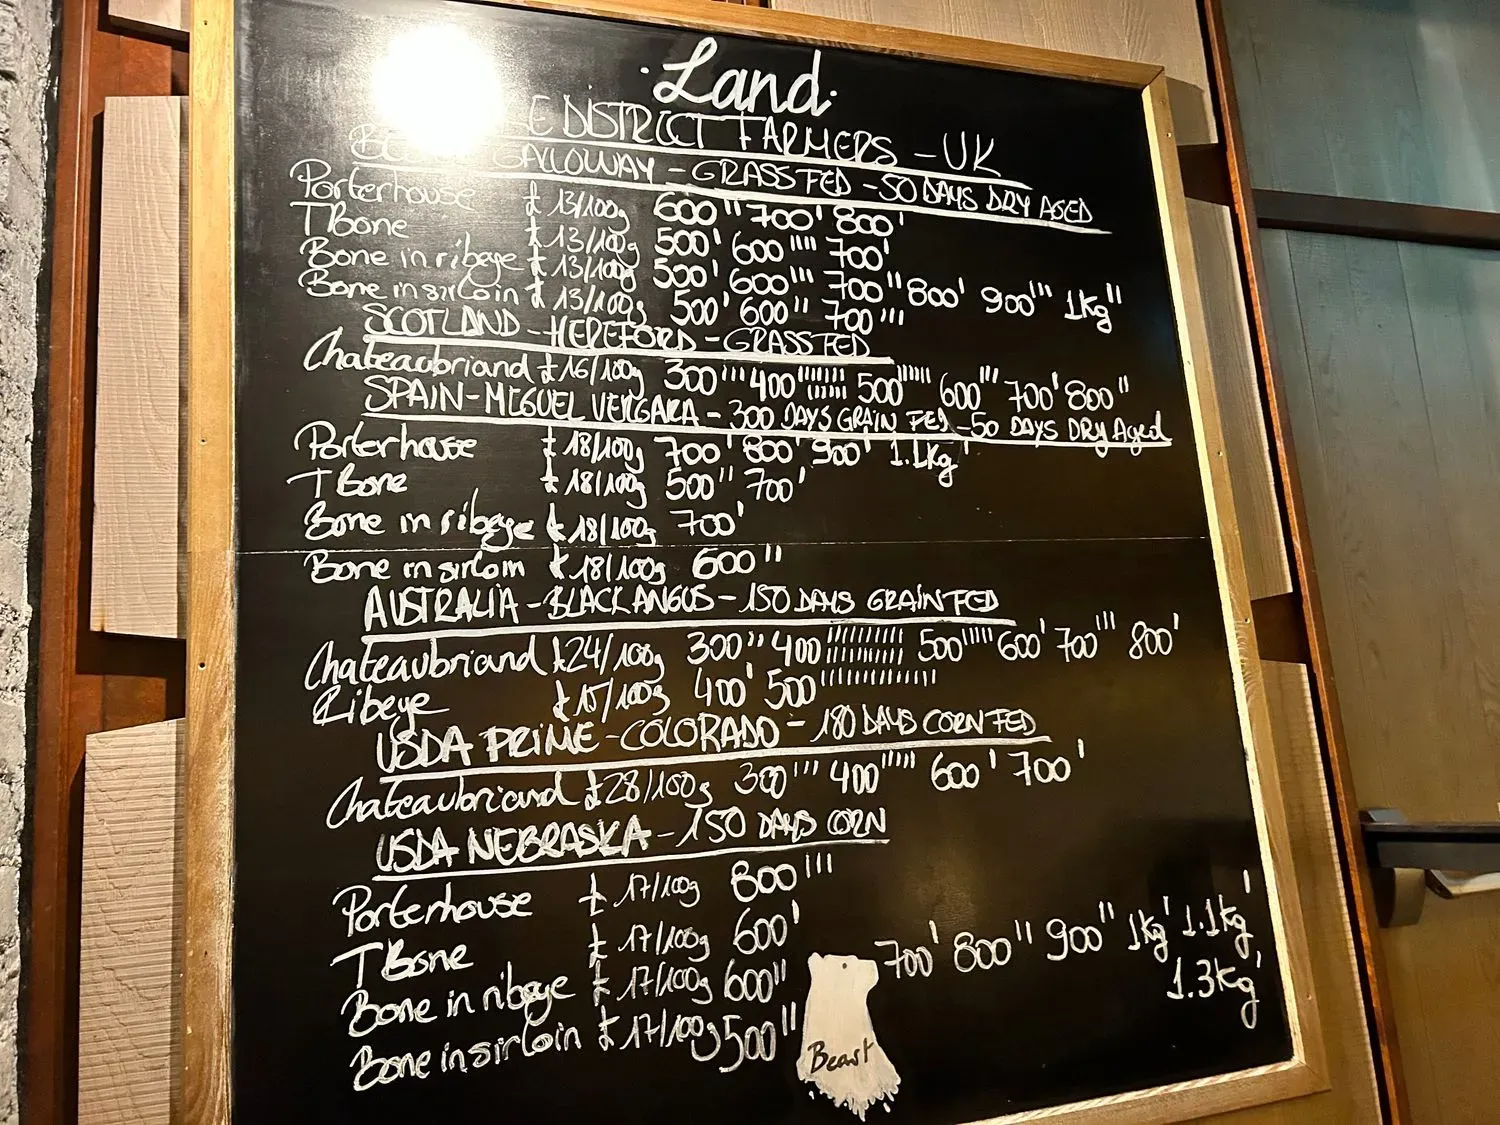 Land
E DISTRICT FARMERS - UK
GALLOWAY - GRASS FED - 50 DAYS DRY AGED
Porterhouse £13/100g 600'' 700' 800'
T Bone £13/100g 500' 600'''' 700'
Bone in ribeye £13/100g 500' 600''' 700'' 800' 900''' 1kg''
Bone in sirloin £13/100g 500' 600'' 700'''
SCOTLAND - HEREFORD - GRASS FED
Chateaubriand £16/100g 300''' 400 500 600''' 700' 800''
SPAIN - MIGUEL VERGARA - 300 DAYS GRAIN FED - 50 DAYS DRY Aged
Porterhouse £18/100g 700' 800' 900' 1.1kg'
T Bone £18/100g 500'' 700'
Bone in ribeye £18/100g 700'
Bone in sirloin £18/100g 600''
AUSTRALIA - BLACK ANGUS - 150 DAYS GRAIN FED
Chateaubriand £24/100g 300''' 400 500''''' 600' 700''' 800'
Ribeye £15/100g 400' 500
USDA PRIME - COLORADO - 180 DAYS CORN FED
Chateaubriand £28/100g 300''' 400''''' 600' 700'
USDA NEBRASKA - 150 DAYS CORN
Porterhouse £17/100g 800'''
T Bone £17/100g 600'
Bone in ribeye £17/100g 600'' 700' 800'' 900'' 1kg' 1.1kg'
1.3kg'
Bone in sirloin £17/100g 500''
Beast